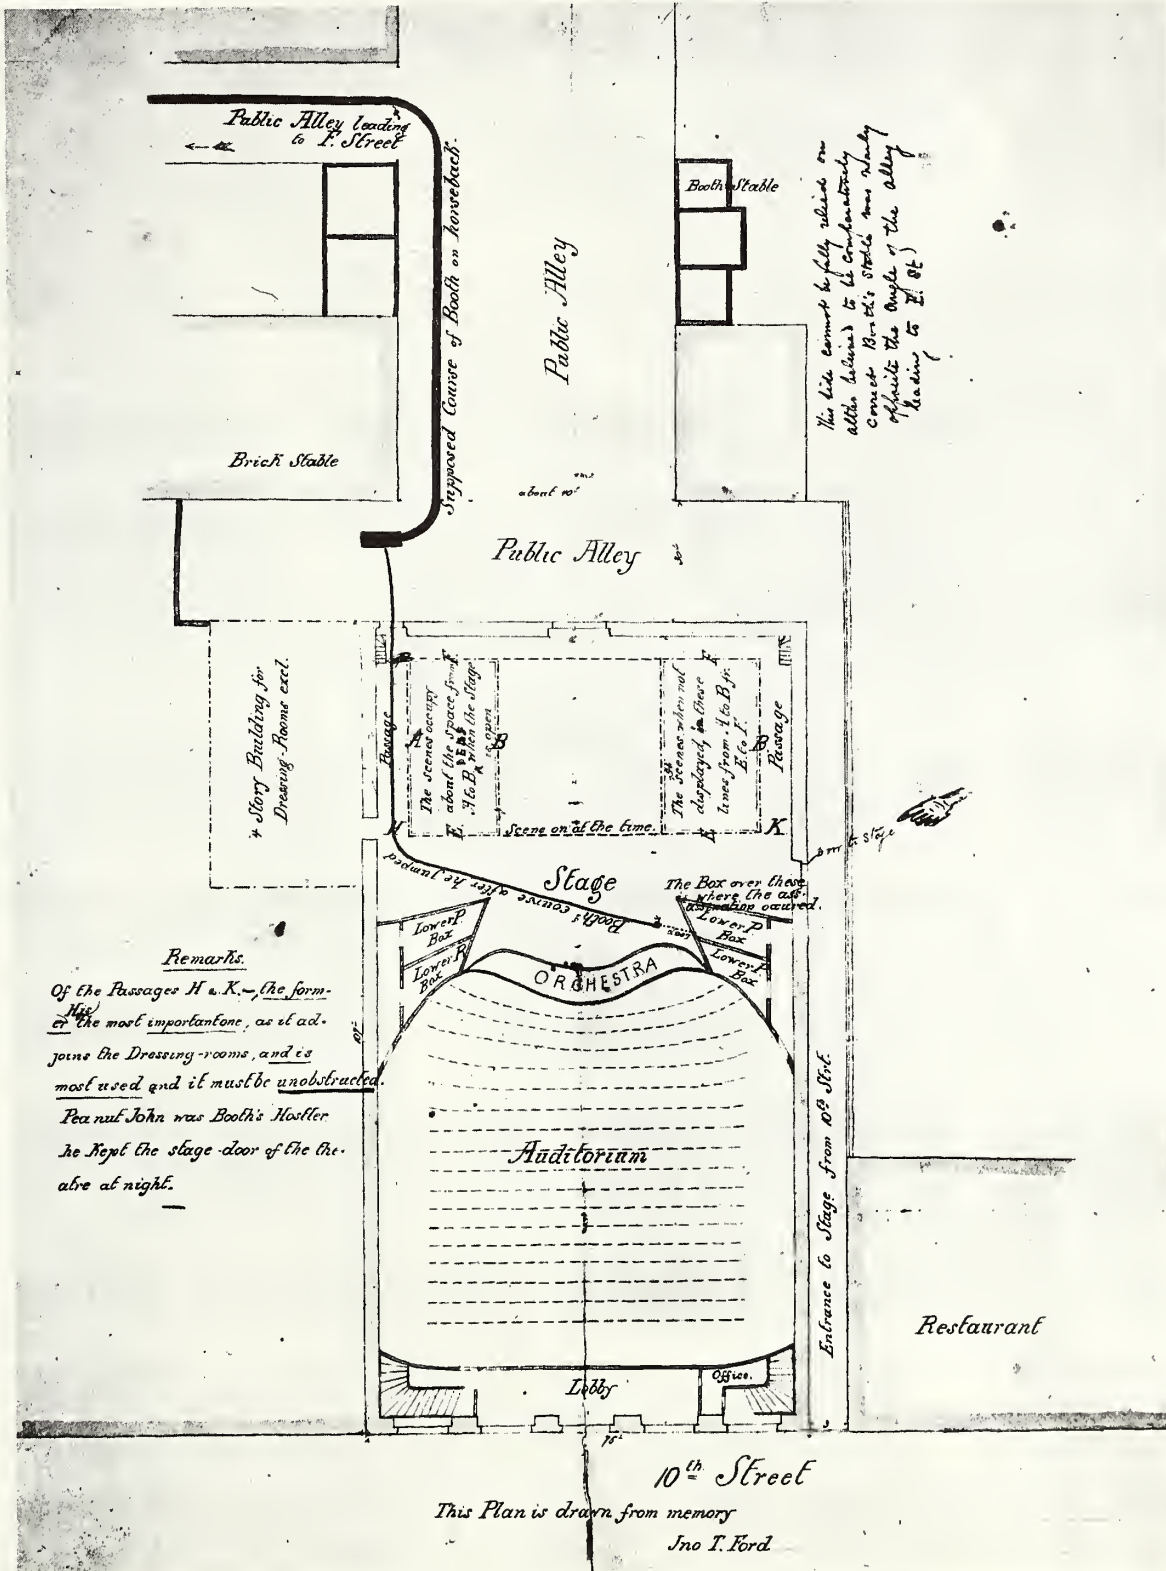 Public Alley leading
to F. Street
Supposed Course of Booth on horseback.
Public Alley
Booth Stable
This side cannot be fully relied on
altho believed to be comparatively
correct Booth's stable was nearly
opposite the Angle of the alley
leading to F. St)
Brick Stable
about 40'
Public Alley
30'
4 Story Building for
Dressing-Rooms excl.
Passage
The scenes occupy
about the space from
A to B, when the Stage
is open
F
A
B
E
H
The scenes when not
displayed, in these
lines from A to B fr.
E to F.
F
B
E
K
Passage
Scene on at the time.
door to stage
Stage
Booth's course after he jumped
The Box over these
where the ass-
assination occured.
Lower P.
Box
Lower P.
Box
Lower P.
Box
Lower P.
Box
ORCHESTRA
Remarks.
Of the Passages H & K.–, the form-
er the most important one, as it ad-
His
joins the Dressing-rooms, and is
most used and it must be unobstructed.
Peanut John was Booth's Hostler
he Kept the stage-door of the the-
atre at night.
Auditorium
Entrance to Stage from 10th Strt.
Restaurant
Office.
Lobby
75'
10th Street
This Plan is drawn from memory
Jno T. Ford